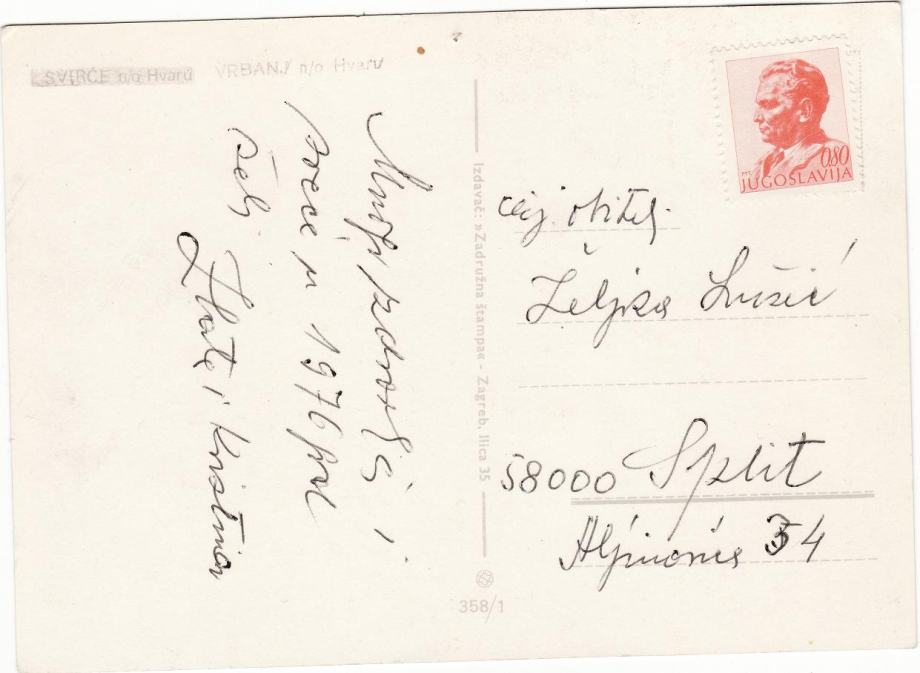 SVIRČE n/o Hvaru VRBANJ n/o Hvaru
Mnogo zdravlja i
sreće u 1976 god
želi
Zlata i Kristina
Izdavač: »Zadružna štampa« - Zagreb, Ilica 35
358/1
0.80
JUGOSLAVIJA
cij. obitelj.
Željka Lušić
58000 Split
34